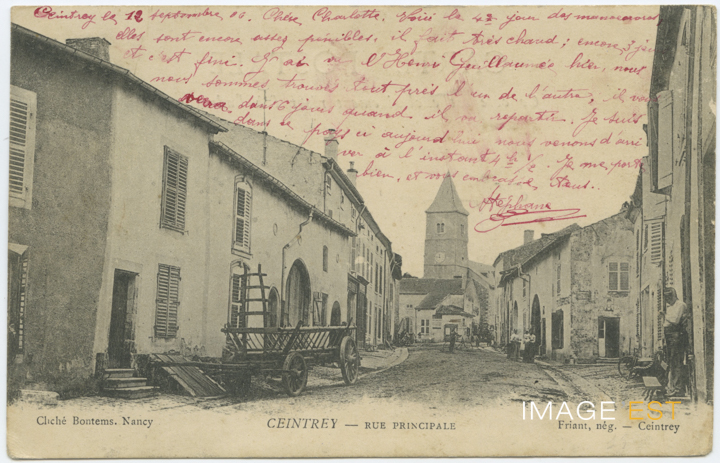 Ceintrey le 12 septembre 06. Chère Charlotte. Voici le 4e jour des manoeuvres
elles sont encore assez pénibles. il fait très chaud ; encore 3 jours
et c'est fini. J'ai vu l'Henri Guillaumée hier, nous
nous sommes trouvés tout près l'un de l'autre, il
dans 6 jours quand il va repartir. Je suis
dans le pays ci aujourd'hui nous venons
à l'instant 4h ½. Je me porte
bien, et vous embrasse, tous.
Stéphane
Cliché Bontems. Nancy
CEINTREY — RUE PRINCIPALE
Friant, nég. — Ceintrey
IMAGE EST